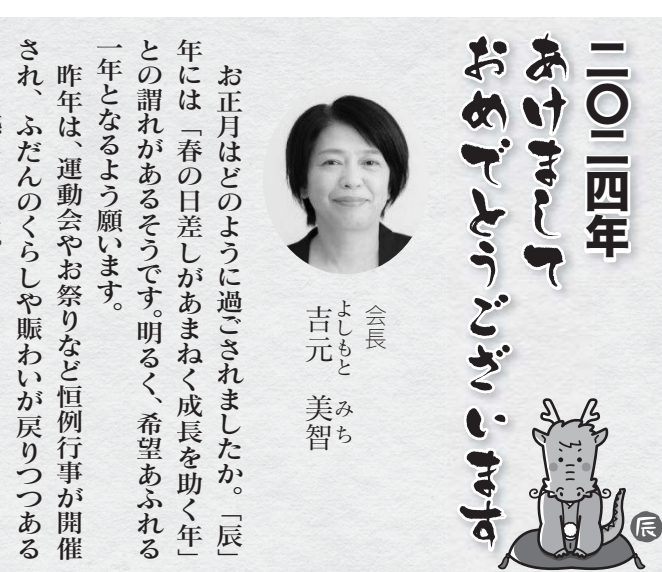 二〇二四年
あけまして
おめでとうございます
辰
会長
よしもと みち
吉元 美智
お正月はどのように過ごされましたか。「辰」
年には「春の日差しがあまねく成長を助く年」
との謂れがあるそうです。明るく、希望あふれる
一年となるよう願います。
昨年は、運動会やお祭りなど恒例行事が開催
され、ふだんのくらしや賑わいが戻りつつある